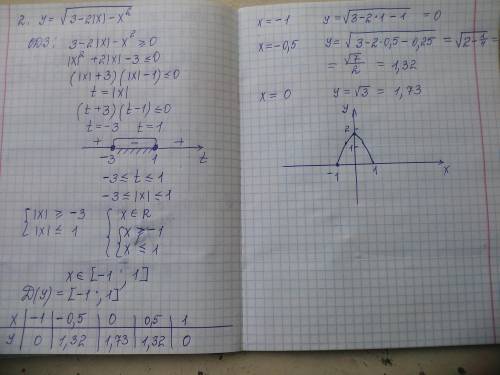 2. y = √(3-2|x|-x²)
ОДЗ: 3-2|x|-x² ≥ 0
|x|² + 2|x| - 3 ≤ 0
(|x|+3)(|x|-1) ≤ 0
t = |x|
(t+3)(t-1) ≤ 0
t = -3 t = 1
+ - +
-3 1 t
-3 ≤ t ≤ 1
-3 ≤ |x| ≤ 1
{ |x| ≥ -3 { x ∈ R
{ |x| ≤ 1 { { x ≥ -1
{ x ≤ 1
x ∈ [-1 ; 1]
D(y) = [-1 ; 1]
x | -1 | -0,5 | 0 | 0,5 | 1
y | 0 | 1,32 | 1,73 | 1,32 | 0
x = -1 y = √(3-2·1-1) = 0
x = -0,5 y = √(3-2·0,5-0,25) = √(2-1/4) =
= √7/2 = 1,32
x = 0 y = √3 = 1,73
y
2
1
-1 1 x